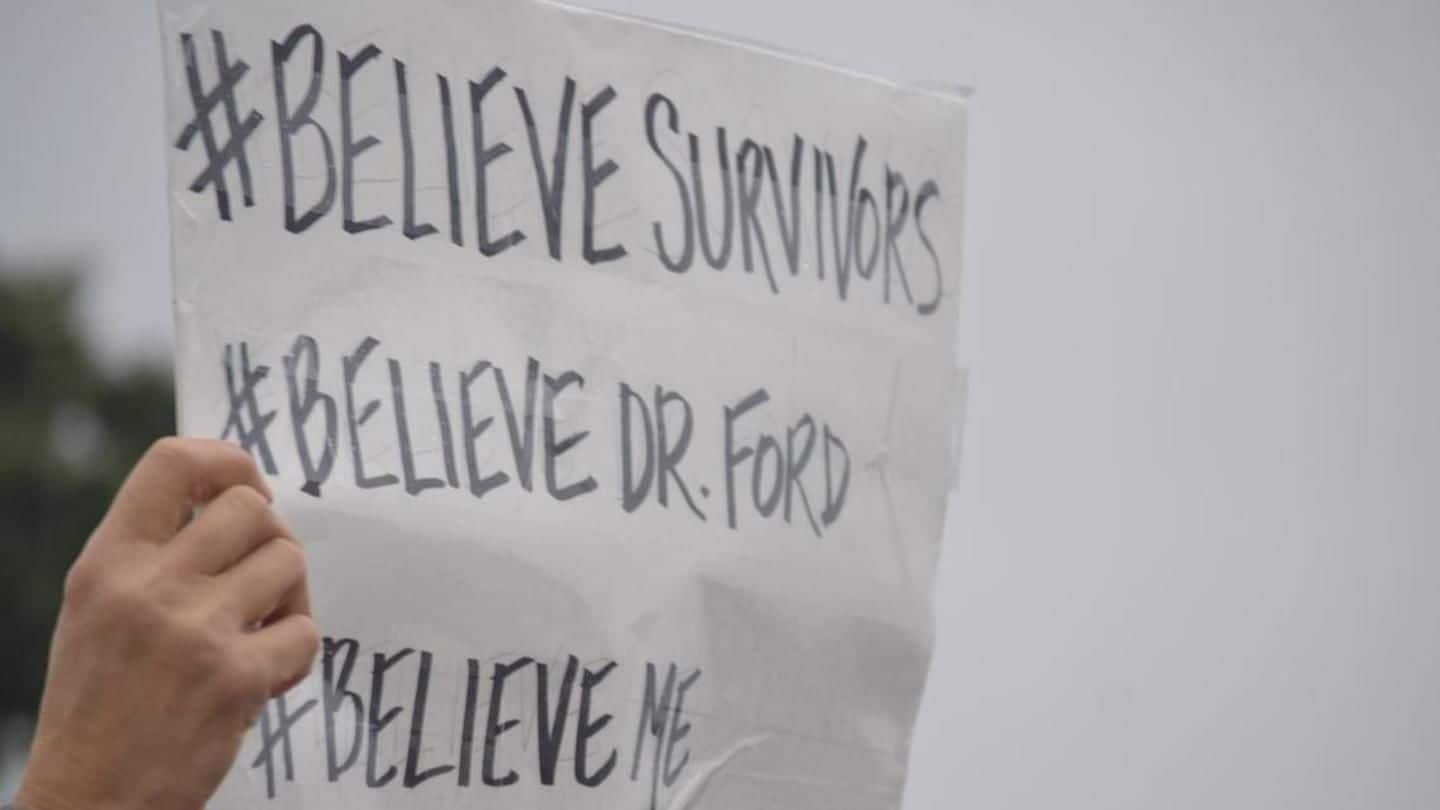 #BELIEVE SURVIVORS
#BELIEVE DR. FORD
#BELIEVE ME